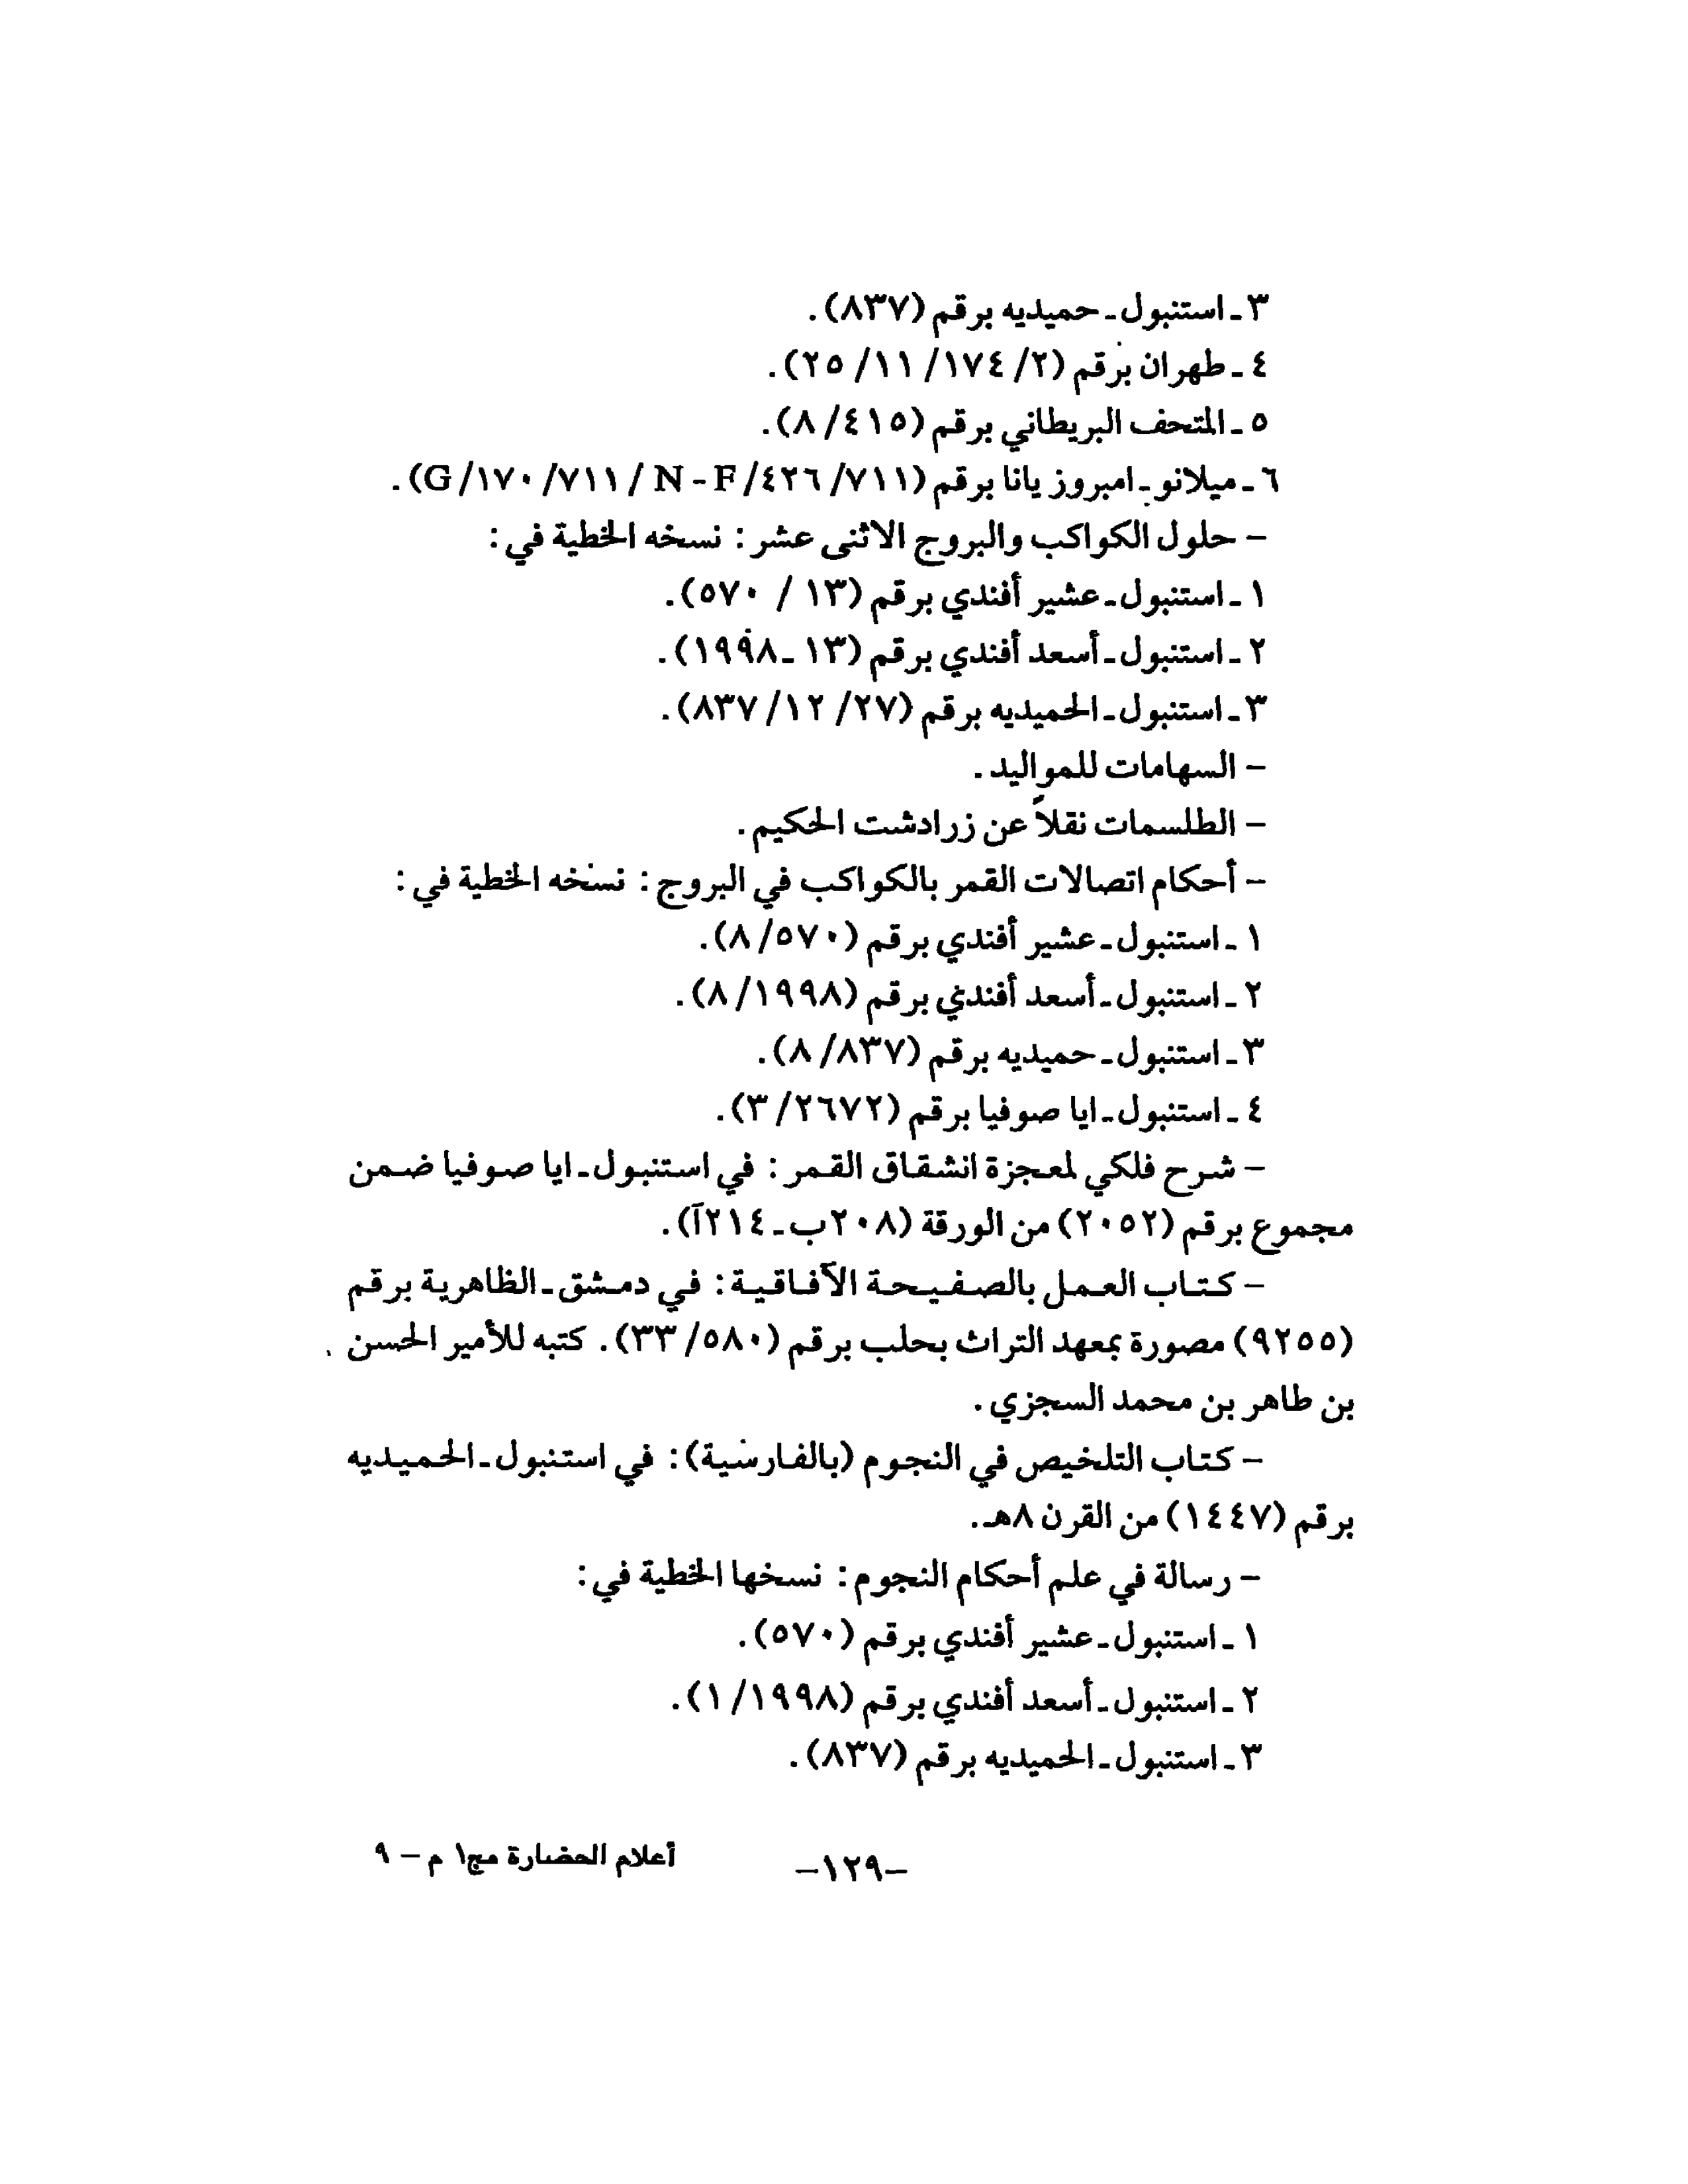 ٣ ـ استنبول ـ حميديه برقم (٨٣٧).
٤ ـ طهران برقم (٢/ ١٧٤/ ١١/ ٢٥).
٥ ـ المتحف البريطاني برقم (٤١٥/ ٨).
٦ ـ ميلانو ـ امبروز يانا برقم (٧١١/ ٤٢٦/ N - F / ٧١١/ ١٧٠/ G).
– حلول الكواكب والبروج الاثنى عشر: نسخه الخطية في:
١ ـ استنبول ـ عشير أفندي برقم (١٣ / ٥٧٠).
٢ ـ استنبول ـ أسعد أفندي برقم (١٣ ـ ١٩٩٨).
٣ ـ استنبول ـ الحميديه برقم (٢٧/ ١٢/ ٨٣٧).
– السهامات للمواليد.
– الطلسمات نقلاً عن زرادشت الحكيم.
– أحكام اتصالات القمر بالكواكب في البروج: نسخه الخطية في:
١ ـ استنبول ـ عشير أفندي برقم (٥٧٠/ ٨).
٢ ـ استنبول ـ أسعد أفندي برقم (١٩٩٨/ ٨).
٣ ـ استنبول ـ حميديه برقم (٨٣٧/ ٨).
٤ ـ استنبول ـ ايا صوفيا برقم (٢٦٧٢/ ٣).
– شرح فلكي لمعجزة انشقاق القمر: في استنبول ـ ايا صوفيا ضمن
مجموع برقم (٢٠٥٢) من الورقة (٢٠٨ب ـ ٢١٤آ).
– كتاب العمل بالصفيحة الآفاقية: في دمشق ـ الظاهرية برقم
(٩٢٥٥) مصورة بمعهد التراث بحلب برقم (٥٨٠/ ٣٣). كتبه للأمير الحسن
بن طاهر بن محمد السجزي.
– كتاب التلخيص في النجوم (بالفارسية): في استنبول ـ الحميديه
برقم (١٤٤٧) من القرن ٨هـ.
– رسالة في علم أحكام النجوم: نسخها الخطية في:
١ ـ استنبول ـ عشير أفندي برقم (٥٧٠).
٢ ـ استنبول ـ أسعد أفندي برقم (١٩٩٨/ ١).
٣ ـ استنبول ـ الحميديه برقم (٨٣٧).
–١٢٩–
أعلام الحضارة مج١ م – ٩